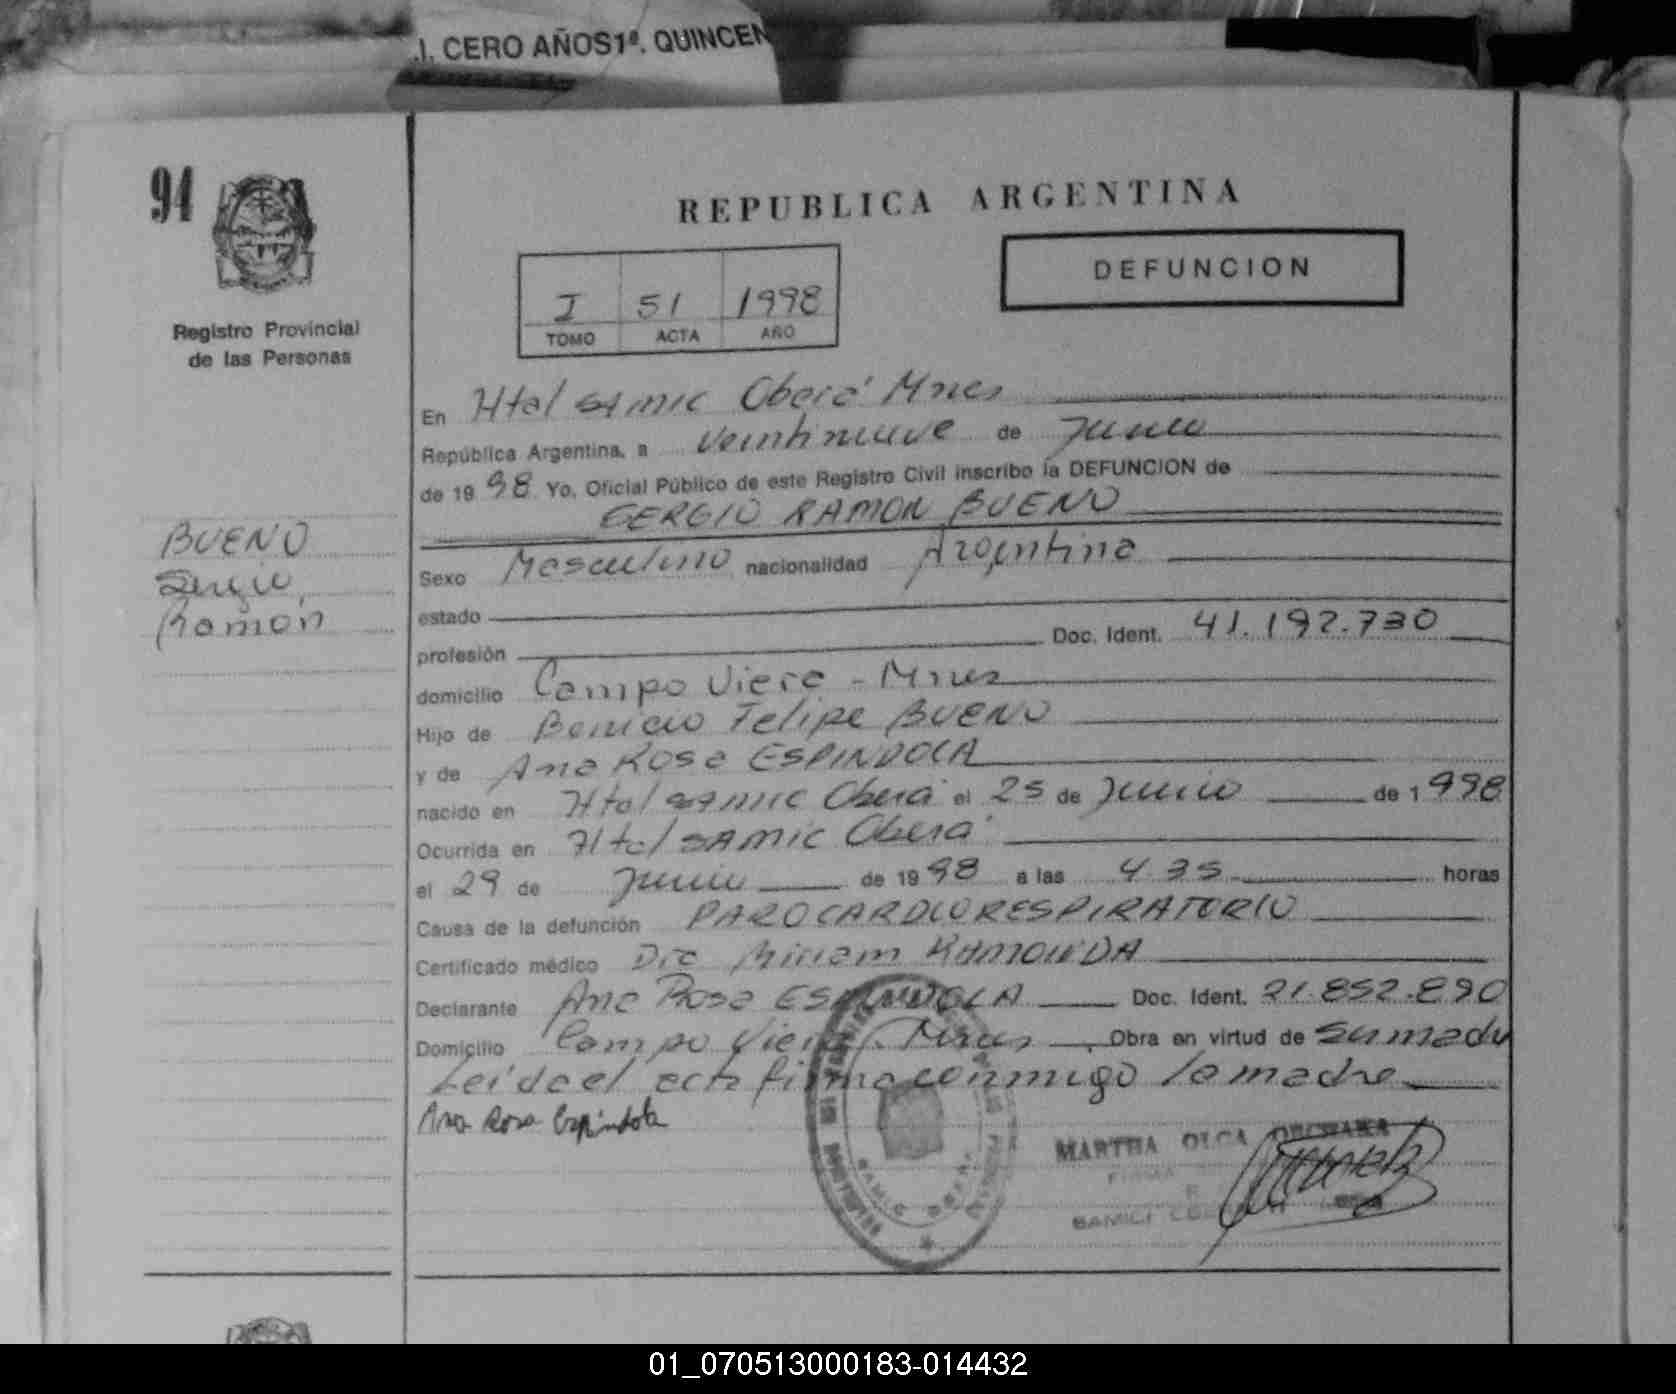 .I. CERO AÑOS 1ª. QUINCEN
94
REPUBLICA ARGENTINA
DEFUNCION
I 51 1998
TOMO ACTA AÑO
Registro Provincial
de las Personas
BUENO
Sergio,
Ramón
En Htal SAMIC Oberá Mnes
República Argentina, a veintinueve de Junio
de 1998 Yo, Oficial Público de este Registro Civil inscribo la DEFUNCION de
SERGIO RAMON BUENO
Sexo Masculino nacionalidad Argentina
estado
profesión Doc. Ident. 41.192.730
domicilio Campo Viera - Mnes
Hijo de Benicio Felipe BUENO
y de Ana Rosa ESPINDOLA
nacido en Htal SAMIC Oberá el 25 de Junio de 1998
Ocurrida en Htal SAMIC Oberá
el 29 de Junio de 1998 a las 4.35 horas
Causa de la defunción PAROCARDIORESPIRATORIO
Certificado médico Dra Miriam RAMONDA
Declarante Ana Rosa ESPINDOLA Doc. Ident. 21.852.890
Domicilio Campo Viera - Mnes Obra en virtud de su madre
Leída el acta firma conmigo la madre
Ana Rosa Espíndola
MARTHA OLGA
FIRMA
SAMIC OBERA
01_070513000183-014432